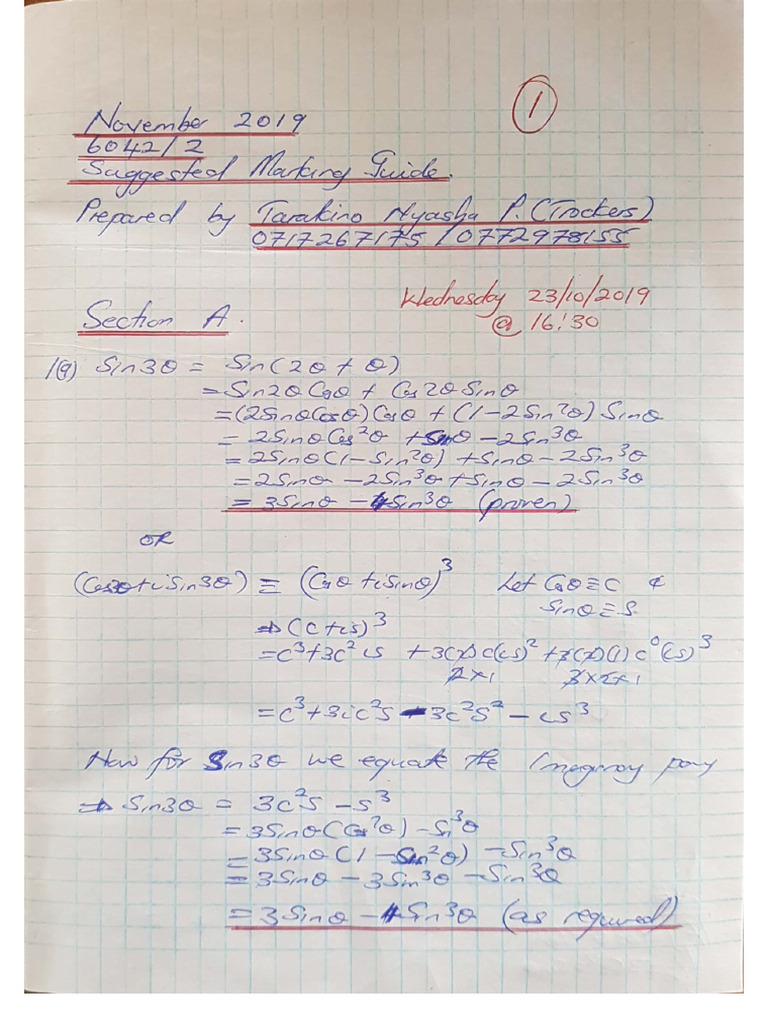 1
November 2019
6042/2
Suggested Marking Guide.
Prepared by Tarakino Nyasha P. (Trockers)
0717267175 / 0772978155
Wednesday 23/10/2019
@ 16:30
Section A.
1(a) Sin3θ = Sin(2θ + θ)
= Sin2θCosθ + Cos2θSinθ
= (2SinθCosθ)Cosθ + (1-2Sin²θ)Sinθ
= 2SinθCos²θ + Sinθ - 2Sin³θ
= 2Sinθ(1-Sin²θ) + Sinθ - 2Sin³θ
= 2Sinθ - 2Sin³θ + Sinθ - 2Sin³θ
= 3Sinθ - 4Sin³θ (proven)
OR
(Cos3θ+iSin3θ) ≡ (Cosθ+iSinθ)³ Let Cosθ≡C &
Sinθ≡S.
⇒ (C+is)³
= C³+3C² is + 3(2)C(is)² + 3(2)(1)C⁰(is)³
2×1 3×2×1
= C³+3iC²S - 3C²S² - iS³
Now for Sin3θ we equate the Imaginary party
⇒ Sin3θ = 3C²S - S³
= 3Sinθ(Cos²θ) - Sin³θ
= 3Sinθ(1-Sin²θ) - Sin³θ
= 3Sinθ - 3Sin³θ - Sin³θ
= 3Sinθ - 4Sin³θ (as required)